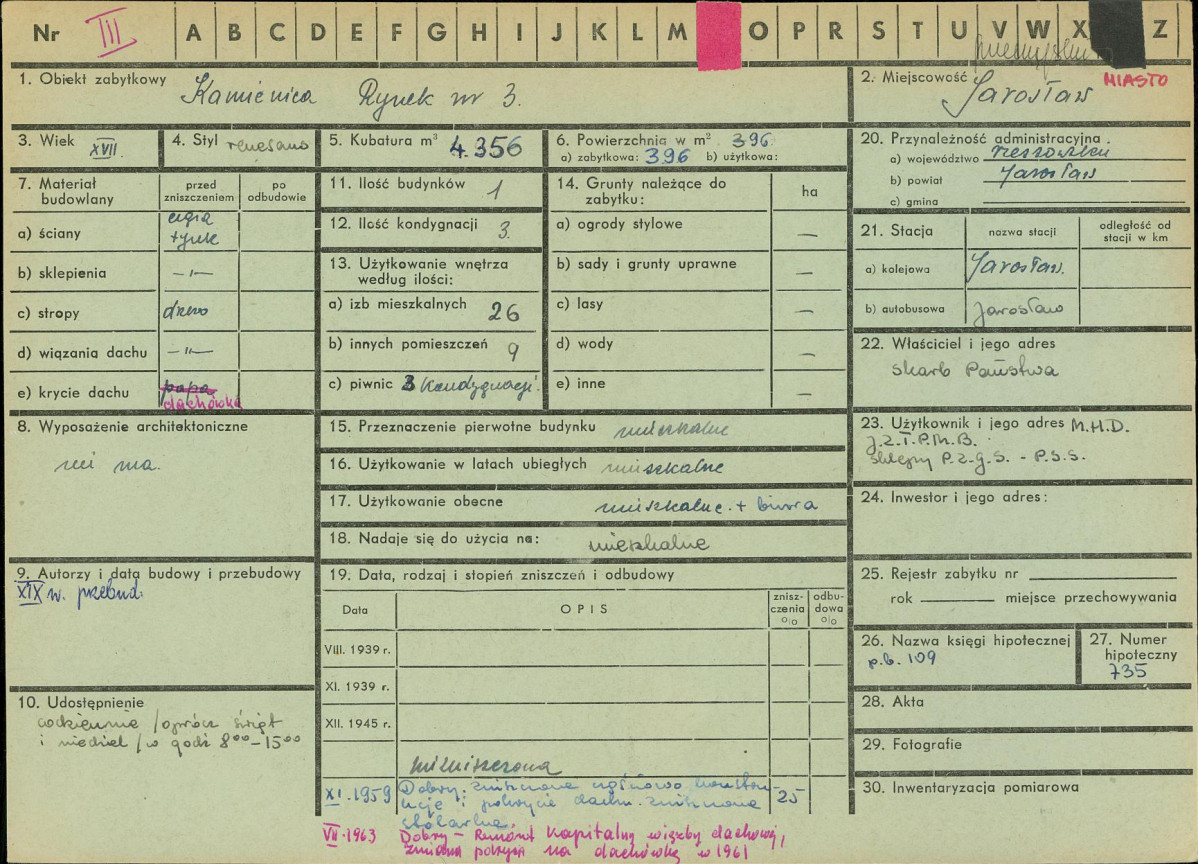 Nr III A B C D E F G H I J K L M O P R S T U V W X Z
1. Obiekt zabytkowy Kamienica Rynek nr 3.
2. Miejscowość Jarosław MIASTO
3. Wiek XVII.
4. Styl renesans
5. Kubatura m³ 4.356
6. Powierzchnia w m² 396
a) zabytkowa: 396 b) użytkowa:
7. Materiał budowlany
przed zniszczeniem
po odbudowie
a) ściany cegła tynk
b) sklepienia —„—
c) stropy drewo
d) wiązania dachu —„—
e) krycie dachu papa
dachówka
8. Wyposażenie architektoniczne
nie ma.
9. Autorzy i data budowy i przebudowy
XIX w. przebud.
10. Udostępnienie
codziennie /oprócz świąt
i niedziel/ w godz 8⁰⁰–15⁰⁰
11. Ilość budynków 1
12. Ilość kondygnacji 3.
13. Użytkowanie wnętrza
według ilości:
a) izb mieszkalnych 26
b) innych pomieszczeń 9
c) piwnic kondygnacji.
14. Grunty należące do
zabytku:
ha
a) ogrody stylowe —
b) sady i grunty uprawne —
c) lasy —
d) wody —
e) inne —
15. Przeznaczenie pierwotne budynku mieszkalne
16. Użytkowanie w latach ubiegłych mieszkalne
17. Użytkowanie obecne mieszkalne + biura
18. Nadaje się do użycia na: mieszkalne
19. Data, rodzaj i stopień zniszczeń i odbudowy
Data OPIS znisz-czenia % odbu-dowa %
VIII. 1939 r.
XI. 1939 r.
XII. 1945 r.
niezniszczona
XI.1959 Dobry: zniszczona częściowo konstru- 25
kcje i pokrycie dachu. zniszczona
stolarka.
VII.1963 Dobry – Remont kapitalny więźby dachowej,
zmiana pokrycia na dachówkę w 1961
20. Przynależność administracyjna.
a) województwo rzeszowskie
b) powiat Jarosław
c) gmina
21. Stacja
nazwa stacji
odległość od stacji w km
a) kolejowa Jarosław.
b) autobusowa Jarosław
22. Właściciel i jego adres
skarb Państwa
23. Użytkownik i jego adres M.H.D.
J.Z.T.P.M.B.
sklepy P.Z.G.S. - P.S.S.
24. Inwestor i jego adres:
25. Rejestr zabytku nr
rok miejsce przechowywania
26. Nazwa księgi hipotecznej
p.b. 109
27. Numer hipoteczny
735
28. Akta
29. Fotografie
30. Inwentaryzacja pomiarowa